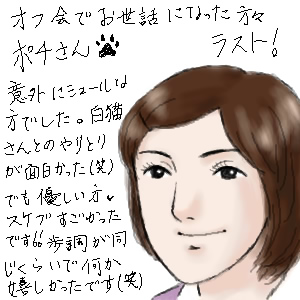 オフ会でお世話になった方々
ポチさん🐾 ラスト!
意外にシュールな
方でした。白猫
さんとのやりとり
が面白かった(笑)
でも優しい方。
スケブすごかった
です!!歩調が同
じくらいで何か
嬉しかったです(笑)